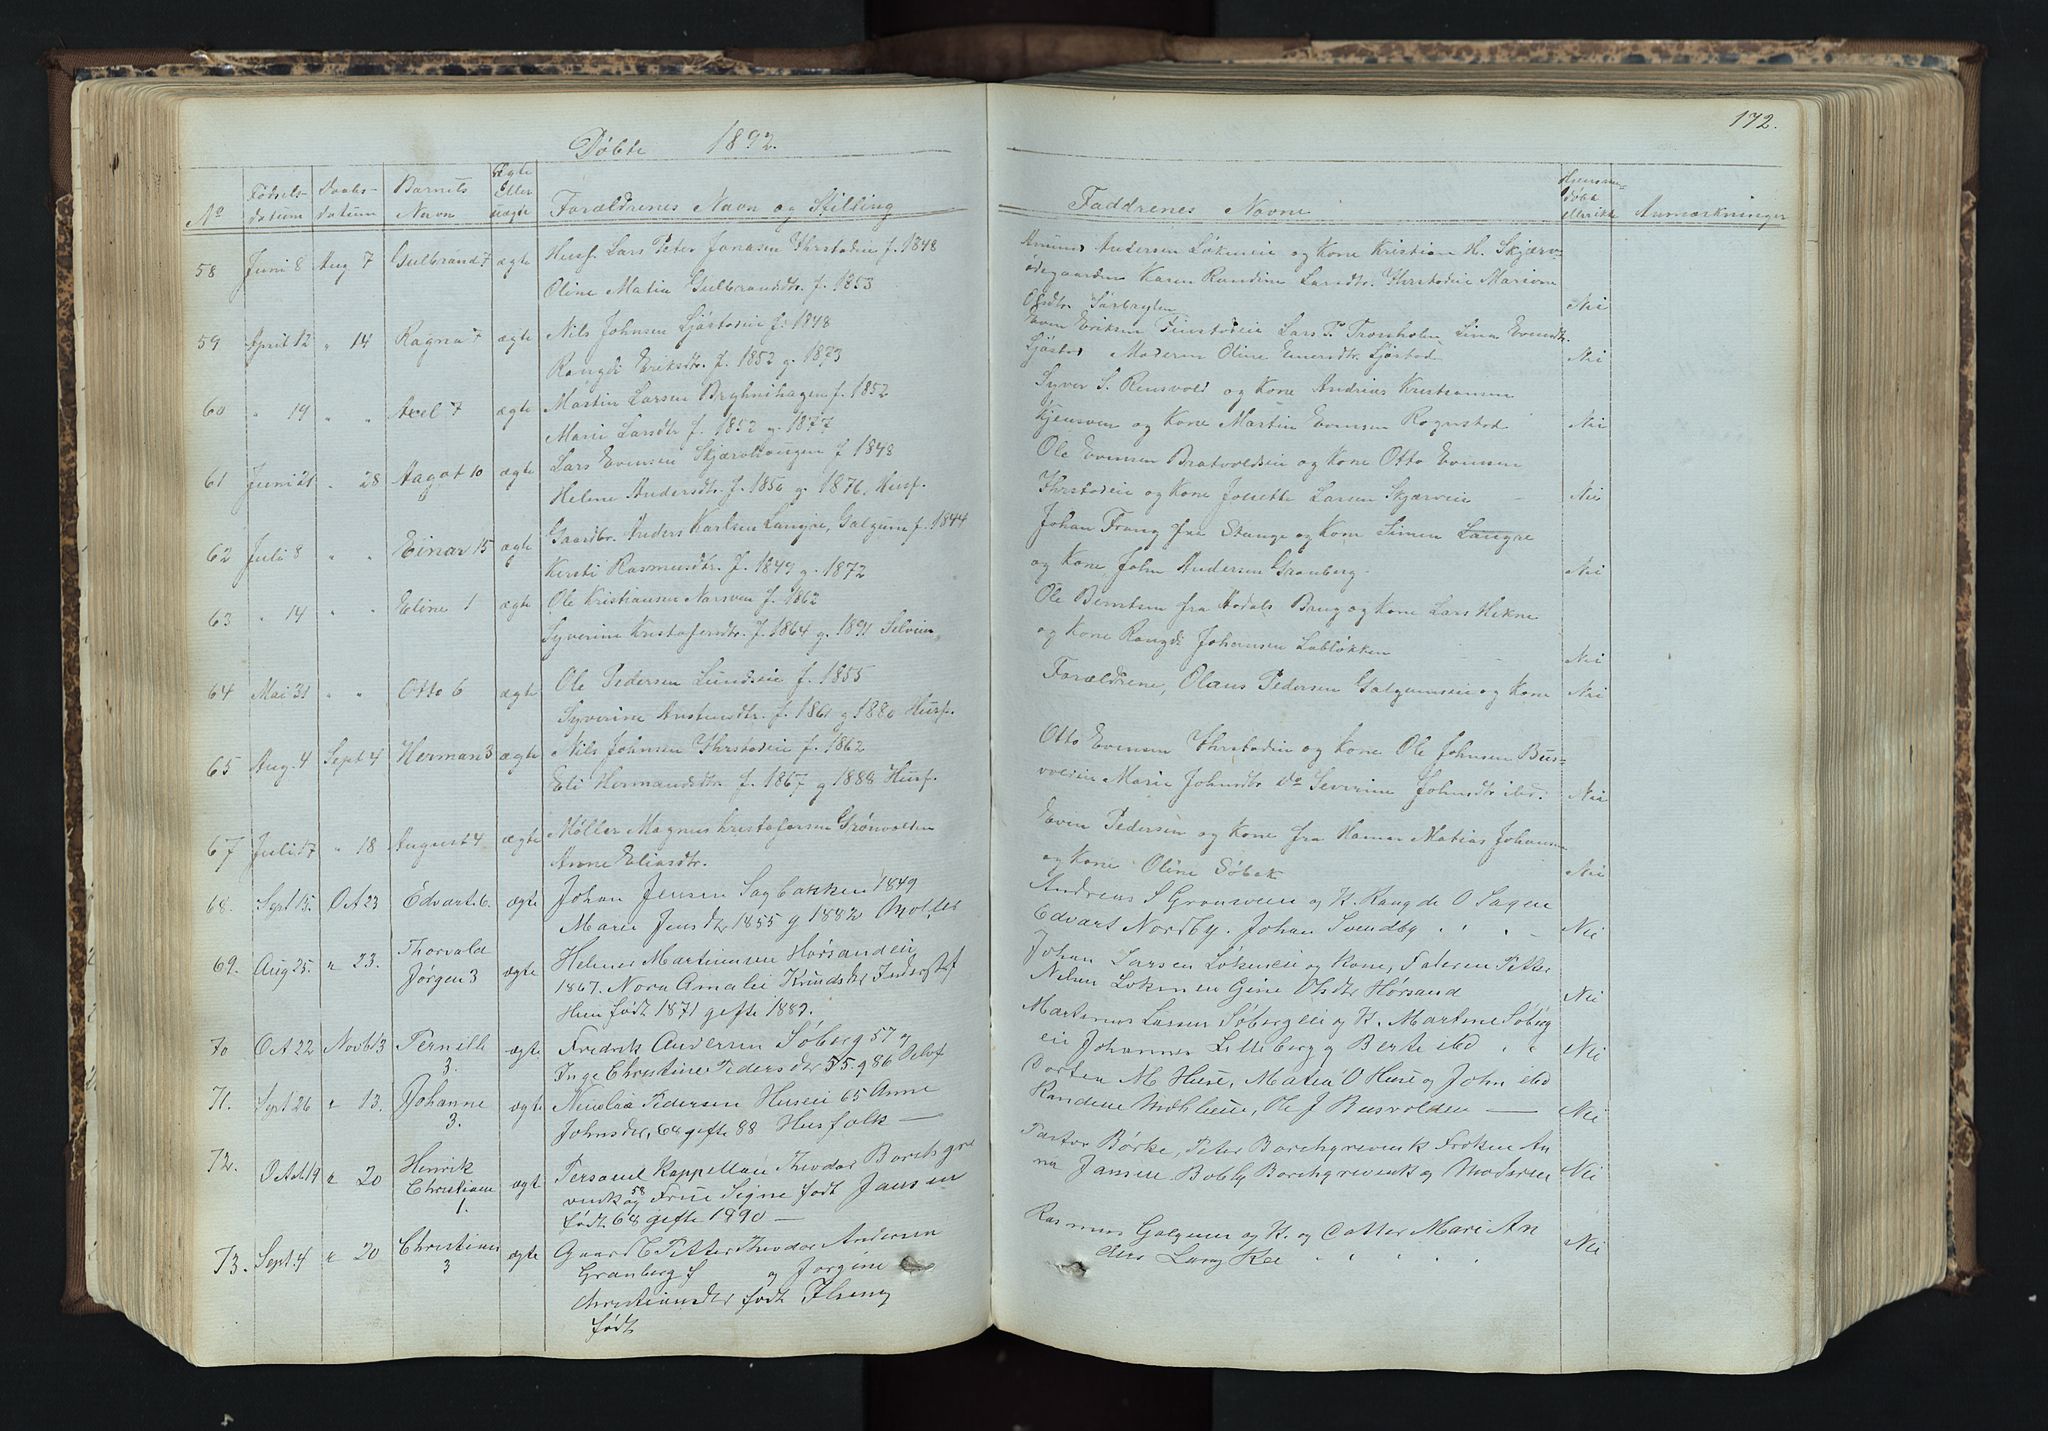 172.
Døbte 1892.
No Fødsels- datum Daabs- datum Barnets Navn Ægte eller uægte Forældrenes Navn og Stilling
Faddrenes Navne Hjemme- døbt eller ikke Anmærkninger
58 Juni 8 Aug 7 Gulbrand 7 ægte Husf. Lars Peter Jonasen f. 1848
Oline Matia Gulbrandsdtr. f. 1853
Andersen Løkeneie og Kone Kristian H. Skjærv-
ødegaarden Karen Randine Larsdtr. Marian
Olsdtr. Nei
59 April 12 " 14 Ragna 7 ægte Nils Johnsen Sjøstadeie f. 1848
Rangdi Eriksdtr. f. 1852 g. 1873
Even Eriksen Lars P. Tromholen Lina Evensdtr.
Sjøstad Moderen Oline Sjøstad Nei
60 " 14 " " Axel 7 ægte Martin Larsen Bryhnihagen f. 1852
Marie Larsdtr f. 1852 g. 1877
Syver S. Rensvold og Kone Andreas Kristiansen
og Kone Martin Evensen Rognstad Nei
61 Juni 21 " 28 Aagot 10 ægte Lars Evensen Skjærvhaugen f 1848
Helene Andersdtr. f. 1850 g. 1876. Husf.
Ole Evensen Bratvoldeie og Kone Otto Evensen
og Kone Josette Larsen Skjærveie Nei
62 Juli 8 " " Einar 15 ægte Gaardbr. Anders Karlsen Langre, Galgum f. 1844
Kersti Rasmusdtr. f. 1849 g. 1872
Johan Frang fra Stange og Kone Simen Langre
og Kone John Andersen Granberg. Nei
63 " 14 " " Eline 1 ægte Ole Kristiansen f. 1862
Syverine Kristofersdtr. f. 1864 g. 1891
Ole Berntsen fra Aadals Brug og Kone Lars Hekne
og Kone Rangdi Johansen Labløkken Nei
64 Mai 31 " " Otto 6 ægte Ole Pedersen Lundeie f. 1855
Syverine f. 1861 g 1880 Husf.
Forældrene, Olaus Pedersen Galgumseie og Kone Nei
65 Aug. 4 Sept 4 Herman 3 ægte Nils Johnsen f. 1862
Eli Hermandsdtr f. 1867 g 1888 Husf.
Otto Evensen og Kone Ole Johnsen Bus-
voldeie Marie Johnsdtr do Severine Johnsdtr ibd. Nei
67 Juli 17 " 18 August 4 ægte Møller Magnus Kristofersen Grønvolden
Anne Eliasdtr.
Even Pedersen og Kone fra Hamar Matias Johansen
og Kone Oline Søbek Nei
68. Sept 15. Oct 23 Edvart. 6. ægte Johan Jensen Sagbakken 1849
Marie Jensdtr 1855 g 1882
Andreas S Gronveie og K. Rangdi O Sagen
Edvart Nordby. Johan Svendby " " " Nei
69. Aug 25. " 23. Thorvald Jørgen 3 ægte Helmer Martinsen Hørsandeie
1867. Nora Amalie Knudsdtr
Hun født 1871 gefte 1889.
Johan Larsen Løkeneie og Kone, Faderen Petter
Nelsen Løkenen Gine Olsdtr Hørsand Nei
70 Oct 22 Novb 13 Pernille 3. ægte Fredrik Andersen Søberg 57 g
Inge Christine Pedersdtr 55. g 86
Martinus Larsen Søbergeie og K. Martine Søberg
eie Johannes Lilleberg g Berte ibd " " Nei
71. Sept 26 " 13. Johanne 3. ægte Nicolai Pedersen Huseie 65 Anne
Johnsdtr, 64 gefte 88 Husfolk —
Dorten M. Huse, Matea O Huse og John ibd
Randene Ole J Busvolden — Nei
72. Octb 19 " 20 Henrik Christian 1. ægte Personel Kappellan Theodor Borchgre
vink 58 og Frue Signe født Jansen
født 68 gefte 1890 —
Pastor Børke, Peter Borchgrevink Frøken An
na Jansen Bolly Borchgrevink og Moderen Nei
73. Sept. 4 " 20 Christian 3 ægte Gaard B Petter Theodor Andersen
Granberg f og Jørgine
Christiansdtr født Ilseng
født
Rasmus Galgum og K. og Datter Mari An
ders Lang Kei " " " " Nei